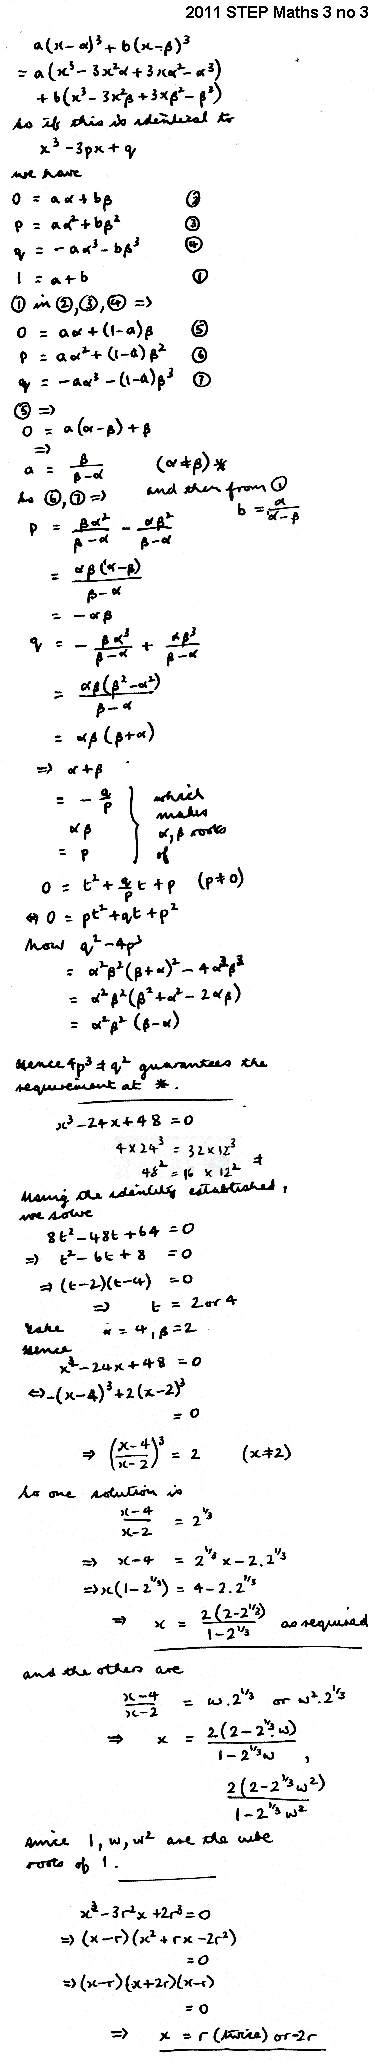 2011 STEP Maths 3 no 3
a(x-α)³ + b(x-β)³
= a(x³ - 3x²α + 3xα² - α³)
+ b(x³ - 3x²β + 3xβ² - β³)
So if this is identical to
x³ - 3px + q
we have
0 = aα + bβ ②
p = aα² + bβ² ③
q = -aα³ - bβ³ ④
1 = a + b ①
① in ②, ③, ④ =>
0 = aα + (1-a)β ⑤
p = aα² + (1-a)β² ⑥
q = -aα³ - (1-a)β³ ⑦
⑤ =>
0 = a(α-β) + β
=>
a = β/(β-α) (α≠β) *
So ⑥, ⑦ => and then from ①
b = α/(α-β)
p = βα²/(β-α) - αβ²/(β-α)
= αβ(α-β)/(β-α)
= -αβ
q = -βα³/(β-α) + αβ³/(β-α)
= αβ(β²-α²)/(β-α)
= αβ(β+α)
=> α+β
= -q/p } which
makes
αβ α, β roots
= p of
0 = t² + (q/p)t + p (p≠0)
⇔ 0 = pt² + qt + p²
Now q² - 4p³
= α²β²(β+α)² - 4α³β³
= α²β²(β² + α² - 2αβ)
= α²β²(β-α)
Hence 4p³ ≠ q² guarantees the
requirement at *.
x³ - 24x + 48 = 0
4 × 24³ = 32 × 12³
48² = 16 × 12² ≠
Using the identity established,
we solve
8t² - 48t + 64 = 0
=> t² - 6t + 8 = 0
=> (t-2)(t-4) = 0
=> t = 2 or 4
Take α = 4, β = 2.
Hence
x³ - 24x + 48 = 0
⇔ -(x-4)³ + 2(x-2)³
= 0
=> ((x-4)/(x-2))³ = 2 (x≠2)
So one solution is
(x-4)/(x-2) = 2^{1/3}
=> x-4 = 2^{1/3}x - 2.2^{1/3}
=> x(1-2^{1/3}) = 4 - 2.2^{1/3}
=> x = 2(2-2^{1/3})/(1-2^{1/3}) as required
and the others are
(x-4)/(x-2) = ω.2^{1/3} or ω².2^{1/3}
=> x = 2(2-2^{1/3}ω)/(1-2^{1/3}ω),
2(2-2^{1/3}ω²)/(1-2^{1/3}ω²)
since 1, ω, ω² are the cube
roots of 1.
x³ - 3r²x + 2r³ = 0
=> (x-r)(x² + rx - 2r²)
= 0
=> (x-r)(x+2r)(x-r)
= 0
=> x = r (twice) or -2r